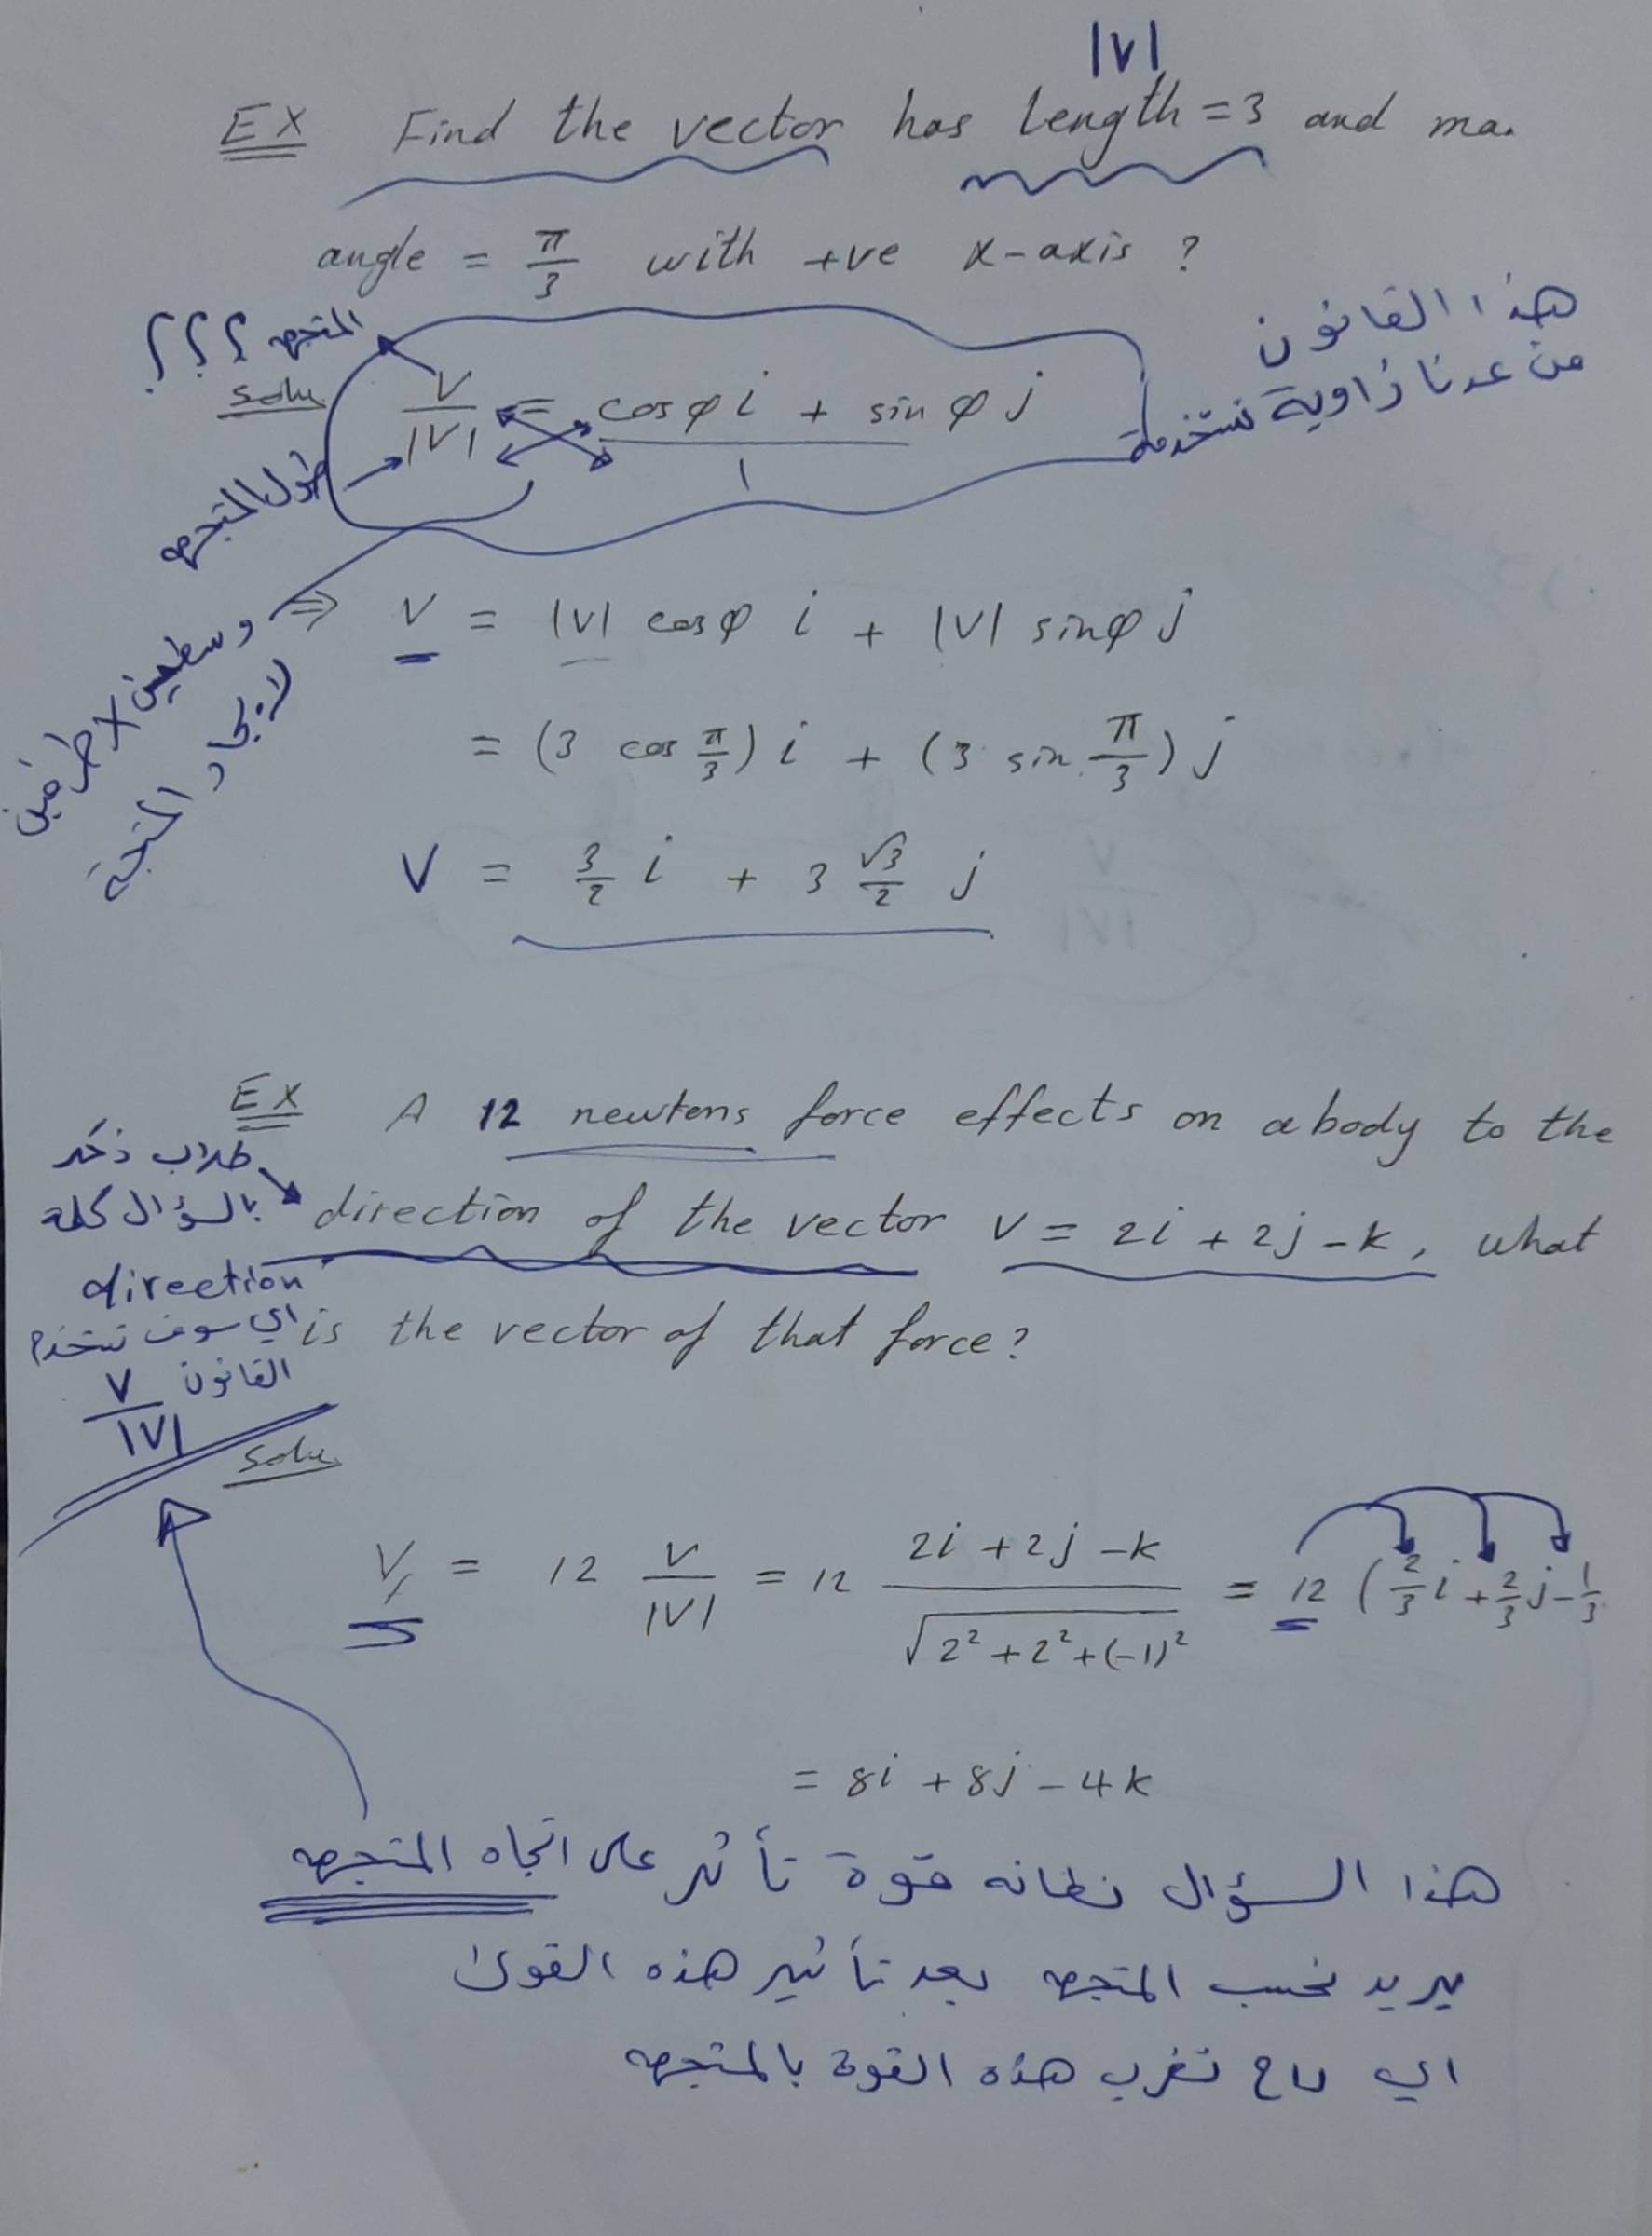 |V|
EX Find the vector has length = 3 and ma
angle = π/3 with +ve x-axis ?
هذا القانون
من عدنا زاوية نستخدمة
المتجه ؟؟؟
solu V/|V| = cosφ i + sinφ j
1
طول المتجه
⇒ V = |V| cosφ i + |V| sinφ j
وسطين × طرفين
لايجاد النتيجة
= (3 cos π/3) i + (3 sin π/3) j
V = 3/2 i + 3 √3/2 j
EX A 12 newtons force effects on a body to the
direction of the vector V = 2i + 2j - k, what
is the vector of that force?
طلاب ذكر
بالسؤال كلمة
direction
اي سوف نستخدم
القانون V/|V|
solu
V = 12 V/|V| = 12 (2i + 2j - k)/√(2² + 2² + (-1)²) = 12 (2/3 i + 2/3 j - 1/3
= 8i + 8j - 4k
هذا السؤال نطانه قوة تأثر على اتجاه المتجه
يريد نحسب المتجه بعد تأثير هذه القوى
اي راح نضرب هذه القوة بالمتجه